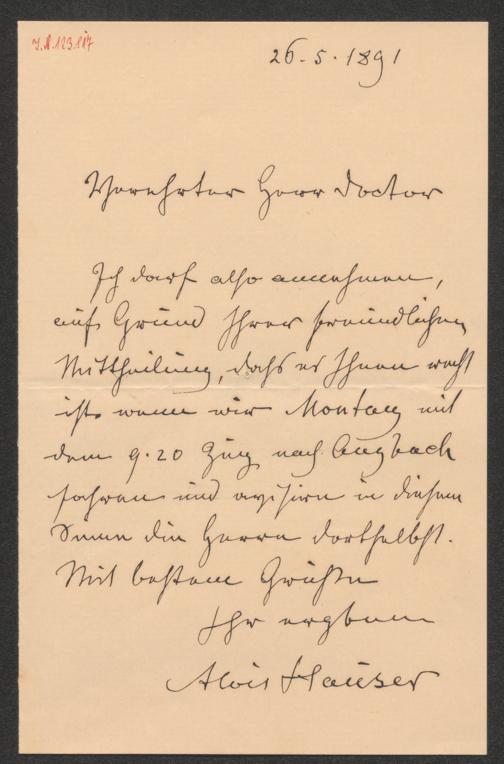 I.N. 123.117
26.5.1891
Verehrter Herr Doctor
Ich darf also annehmen,
auf Grund Ihrer freundlichen
Mittheilung, daß es Ihnen recht
ist wenn wir Montag mit
dem 9.20 Zug nach
fahren und avisire in diesem
Sinne die Herrn dortselbst.
Mit besten Grüßen
Ihr ergbner
Alois Hauser